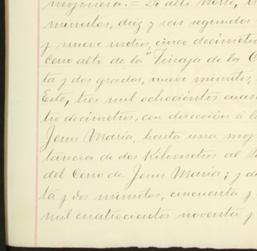 mojonera.= De alto Norte,
minutos, diez y seis segundos
y nueve metros, cinco decímetros
cerro alto de la "Tinaja de la C
ta y dos grados, nueve minutos,
Este, tres mil ochocientos cuaren
tro decímetros, con dirección á l
Jesus María, hasta una moj
tancia de dos Kilómetros al
del Cerro de Jesus María; y d
ta y dos minutos, cincuenta y
mil cuatrocientos noventa y